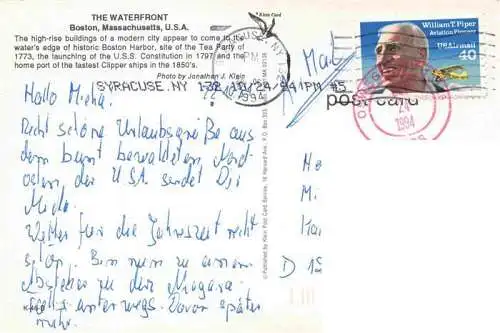 THE WATERFRONT
Boston, Massachusetts, U.S.A.
The high-rise buildings of a modern city appear to come to the
water's edge of historic Boston Harbor, site of the Tea Party of
1773, the launching of U.S.S. Constitution in 1797 and the
home port of the fastest Clipper ships in the 1850's.
Photo by Jonathan J. Klein
© Klein Post Card
SYRACUSE NY 132 10/24/94 1PM #5
post card
William T. Piper
Aviation Pioneer
US Airmail
40
PM
1994
24
1994
Air Mail
Hallo Micha,
Recht schöne Urlaubsgrüße aus
dem bunt bewaldeten Nord-
osten der USA sendet Dir
Wetter für die Jahreszeit recht
schön. Bin nun zu einem
Abstecher zu den Niagara
Falls unterwegs. Davon später
mehr.
© Published by Klein Post Card Service, 16 Harvard Ave., P.O. Box 353
D